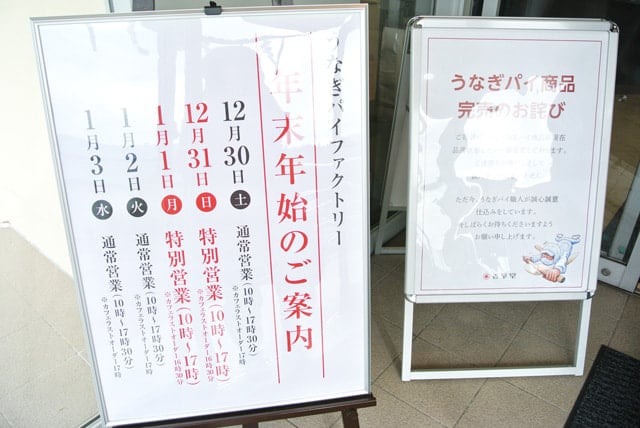 うなぎパイファクトリー
年末年始のご案内
12月30日 土 通常営業(10時〜17時30分)
※カフェラストオーダー17時
12月31日 日 特別営業(10時〜17時)
※カフェラストオーダー16時30分
1月1日 月 特別営業(10時〜17時)
※カフェラストオーダー16時30分
1月2日 火 通常営業(10時〜17時30分)
※カフェラストオーダー17時
1月3日 水 通常営業(10時〜17時30分)
※カフェラストオーダー17時
うなぎパイ商品
完売のお詫び
ただ今、うなぎパイ職人が誠心誠意
仕込みをしています。
今しばらくお待ちくださいますよう
お願い申し上げます。
春華堂